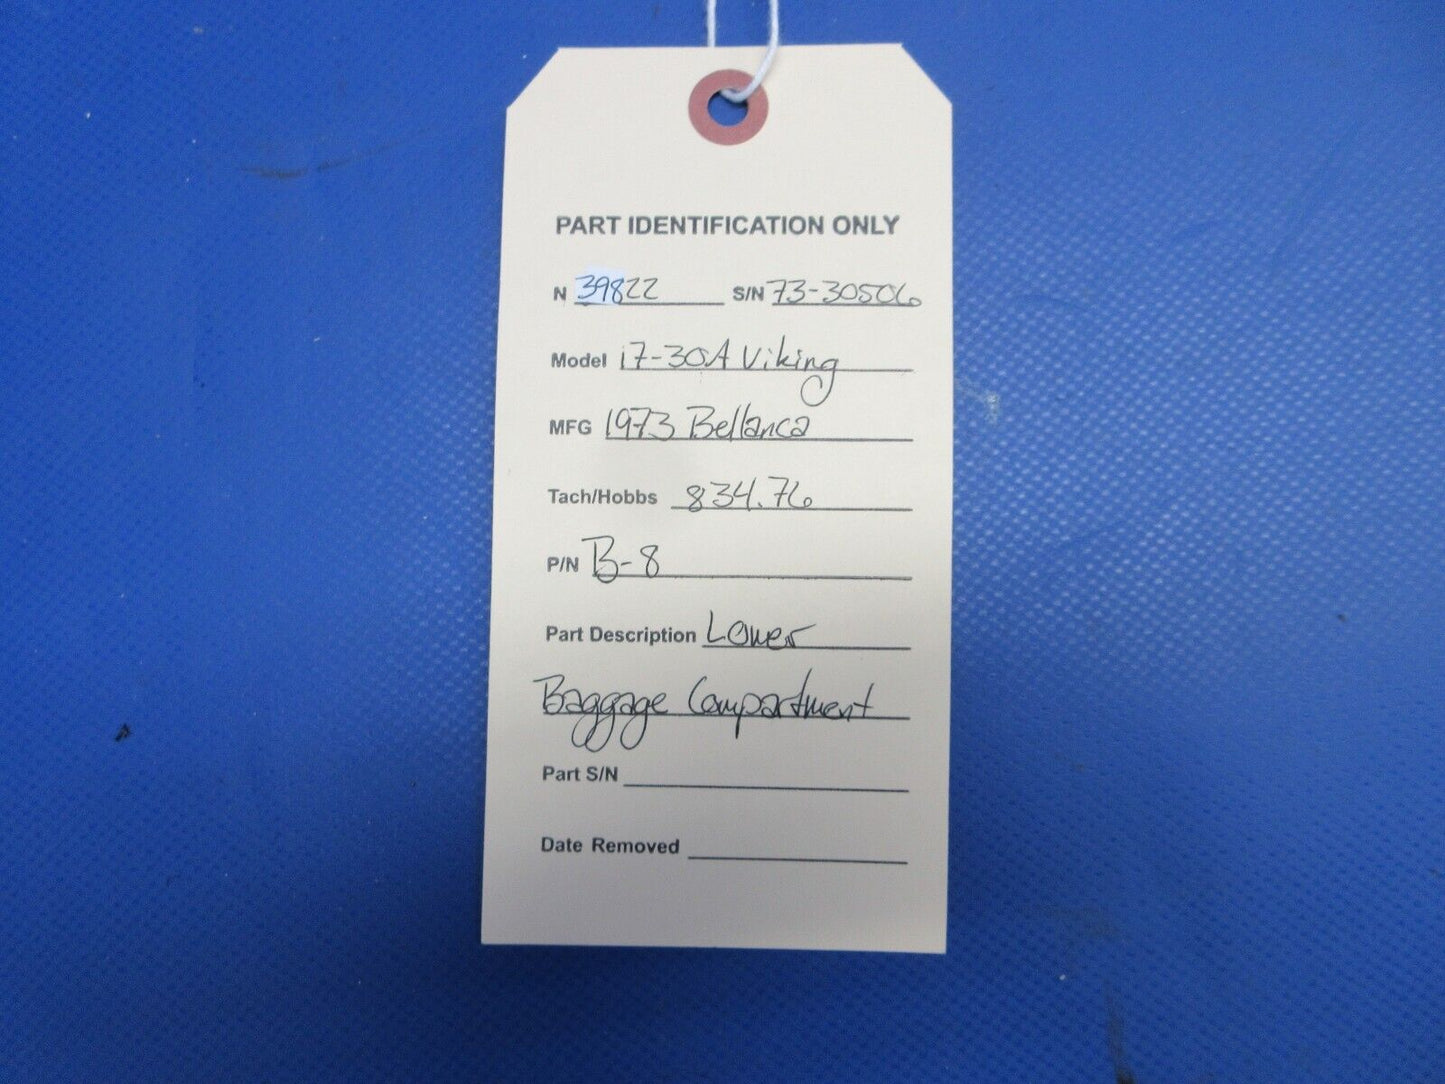 PART IDENTIFICATION ONLY
N 39822 S/N 73-30506
Model 17-30A Viking
MFG 1973 Bellanca
Tach/Hobbs 834.76
P/N B-8
Part Description Lower
Baggage Compartment
Part S/N
Date Removed